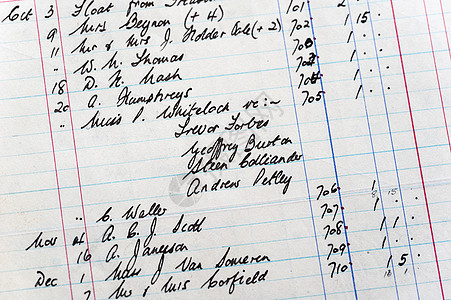 Oct 3 Float from
9 Mrs Beynon (+ 4) 701 2
11 Mr & Mrs J. Holder Cole (+ 2) 702 1 15
" W. N. Thomas 703 1
18 D. N. Nash 704 1
20 A. Humphreys 705 1
" Miss P. Whitelock re :-
Trevor Forbes
Geoffrey Burton
Steen Colliander
Andrew Petley
" C. Waller 706 1
Nov A. C. J. Scott 707 1
16 A. Jameson 708 1 1
Dec 1 Miss J Van Someren 709 1
7 Mr & Mrs Corfield 710 1 5